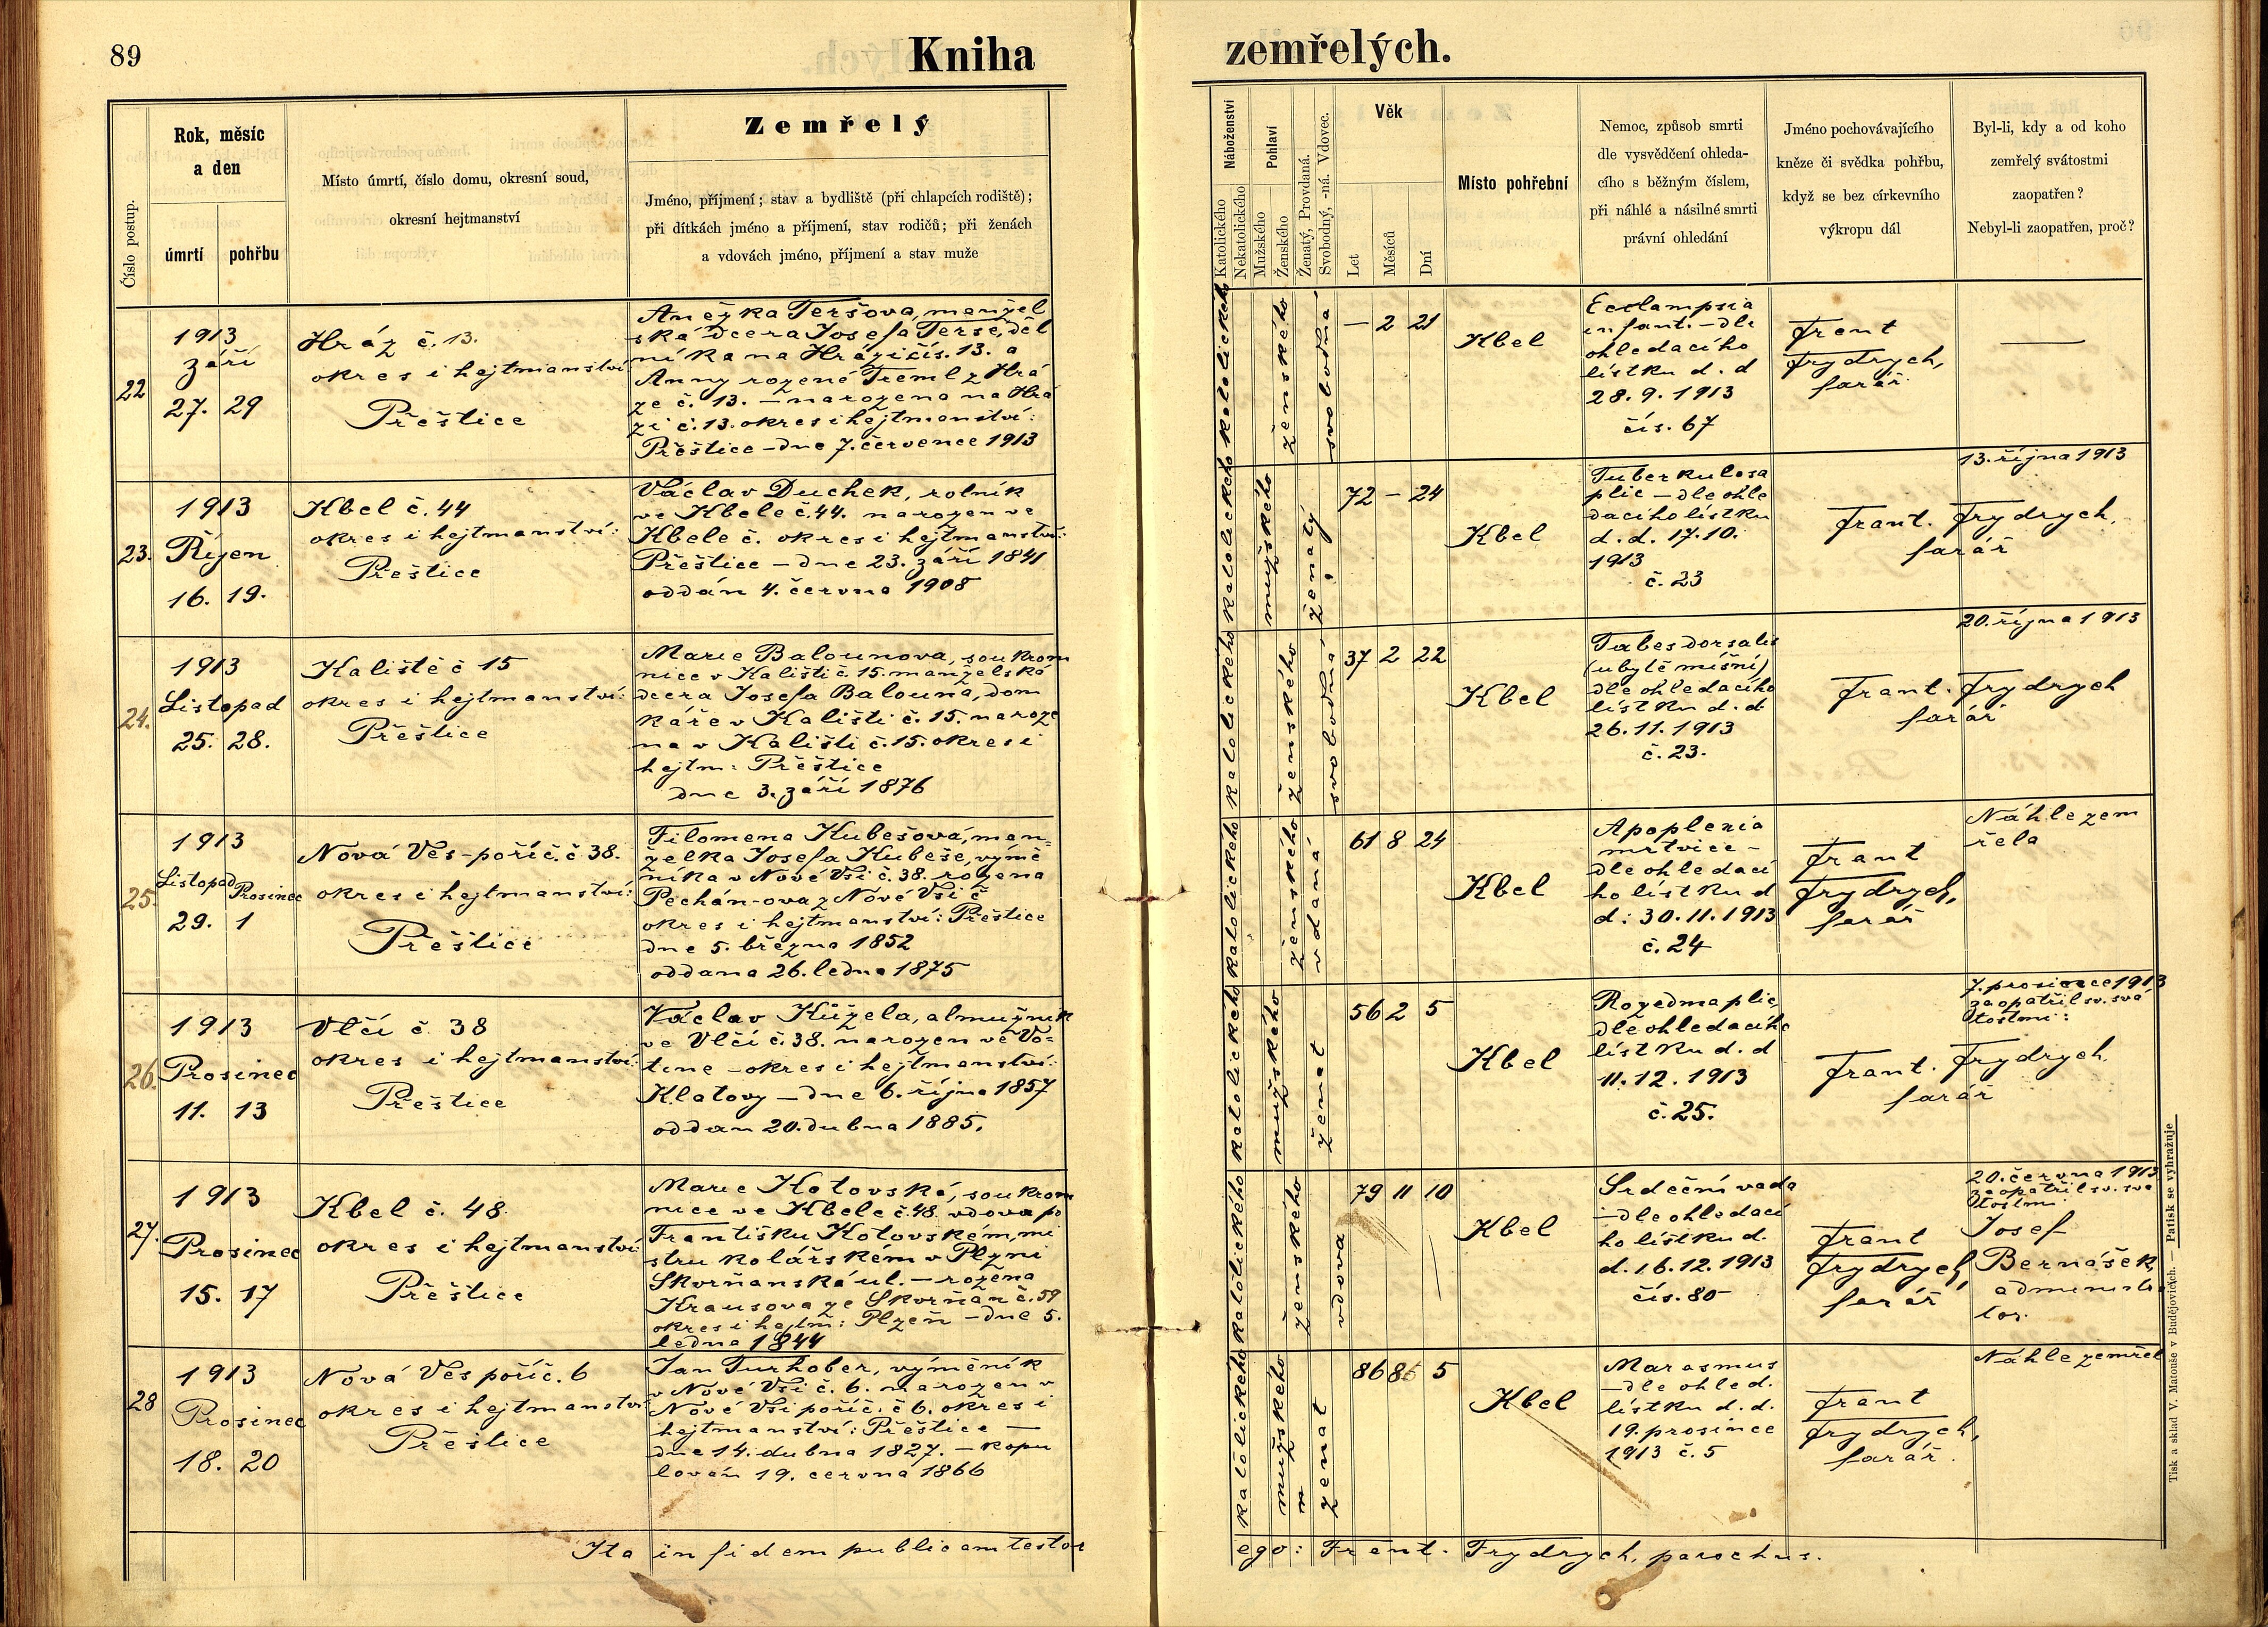 89
Kniha
zemřelých.
Číslo postup.
Rok, měsíc
a den
úmrtí
pohřbu
Místo úmrtí, číslo domu, okresní soud,
okresní hejtmanství
Zemřelý
Jméno, příjmení; stav a bydliště (při chlapcích rodiště);
při dítkách jméno a příjmení, stav rodičů; při ženách
a vdovách jméno, příjmení a stav muže
Náboženství
Katolického
Nekatolického
Pohlaví
Mužského
Ženského
Ženatý, Provdaná.
Svobodný, -ná. Vdovec.
Věk
Let
Měsíců
Dní
Místo pohřební
Nemoc, způsob smrti
dle vysvědčení ohleda-
cího s běžným číslem,
při náhlé a násilné smrti
právní ohledání
Jméno pochovávajícího
kněze či svědka pohřbu,
když se bez církevního
výkropu dál
Byl-li, kdy a od koho
zemřelý svátostmi
zaopatřen?
Nebyl-li zaopatřen, proč?
22
1913
září
27. 29
Hráz č. 13.
okres i hejtmanství
Přeštice
Anežka Teršova, manžel
ská dcera Josefa Terše, děl
níka na Hrázi čís. 13. a
Anny rozené Treml z Hrá
ze č. 13. – narozena na Hrá
zi č. 13. okres i hejtmanství:
Přeštice – dne 7. července 1913
katolického
ženského
svobodná
– 2 21
Kbel
Ecclampsia
infant. – dle
ohledacího
lístku d. d
28. 9. 1913
čís. 67
Frant
Frydrych,
farář.
—
23.
1913
Říjen
16. 19.
Kbel č. 44
okres i hejtmanství:
Přeštice
Václav Duchek, rolník
ve Kbele č. 44. narozen ve
Kbele č. okres i hejtmanství:
Přeštice – dne 23. září 1841
oddán 4. června 1908
katolického
mužského
ženatý
72 – 24
Kbel
Tuberkulosa
plic – dle ohle
dacího lístku
d. d. 17. 10.
1913
č. 23
13. října 1913
Frant. Frydrych,
farář
24.
1913
Listopad
25. 28.
Kaliště č 15
okres i hejtmanství:
Přeštice
Marie Balounova, soukrom
nice v Kališti č. 15. manželská
dcera Josefa Balouna, dom
káře v Kališti č. 15. naroze
na v Kališti č. 15. okres i
hejtm: Přeštice
dne 3. září 1876
katolického
ženského
svobodná
37 2 22
Kbel
Tabes dorsalis
(ubytě míšní)
dle ohledacího
lístku d. d
26. 11. 1913
č. 23.
20. října 1913
Frant. Frydrych
farář
25.
1913
Listopad Prosinec
29. 1
Nová Ves-poříč. č 38.
okres i hejtmanství:
Přeštice
Filomena Kubešová, man-
želka Josefa Kubeše, výmě
níka v Nové Vsi č. 38. rozena
Pechán-ova z Nové Vsi č
okres i hejtmanství: Přeštice
dne 5. března 1852
oddana 26. ledna 1875
katolického
ženského
vdaná
61 8 24
Kbel
Apoplexia
mrtvice –
dle ohledací
ho lístku d
d: 30. 11. 1913
č. 24
Frant
Frydrych,
farář
Náhle zem
řela
26.
1913
Prosinec
11. 13
Vlčí č 38
okres i hejtmanství:
Přeštice
Václav Kůžela, almužník
ve Vlčí č. 38. narozen ve Vo-
tíne – okres i hejtmanství:
Klatovy – dne 6. října 1857
oddan 20. dubna 1885.
katolického
mužského
ženat
56 2 5
Kbel
Rozedma plic
dle ohledacího
lístku d. d
11. 12. 1913
č. 25.
7. prosince 1913
zaopatřil sv. svá
tostmi:
Frant. Frydrych.
farář
27.
1913
Prosinec
15. 17
Kbel č. 48.
okres i hejtmanství
Přeštice
Marie Kotovská, soukrom
nice ve Kbele č. 48. vdova po
Františku Kotovském, mi
stru kolářském v Plzni
Skvrňanská ul. – rozena
Krausova ze Skvrňan č. 59
okres i hejtm: Plzeň – dne 5.
ledna 1844
katolického
ženského
vdova
79 11 10
Kbel
Srdeční vada
– dle ohledací
ho lístku d.
d. 16. 12. 1913
čís. 80
Frant
Frydrych,
farář
20. června 1913
zaopatřil sv. svá
tostmi
Josef
Bernášek,
administra
tor.
28
1913
Prosinec
18. 20
Nová Ves poříč. 6
okres i hejtmanství
Přeštice
Jan Turhober, výměník
v Nové Vsi č. 6. narozen v
Nové Vsi poříč. č 6. okres i
hejtmanství: Přeštice —
dne 14. dubna 1827. – kopu
lován 19. června 1866
katolického
mužského
ženat
86 8 5
Kbel
Marasmus
– dle ohled.
lístku d. d.
19. prosince
1913 č. 5
Frant
Frydrych,
farář.
Náhle zemřel
Ita in fidem publicam testor
ego: Frant. Frydrych, parochus.
Tisk a sklad V. Matouše v Budějovicích. — Patisk se vyhražuje